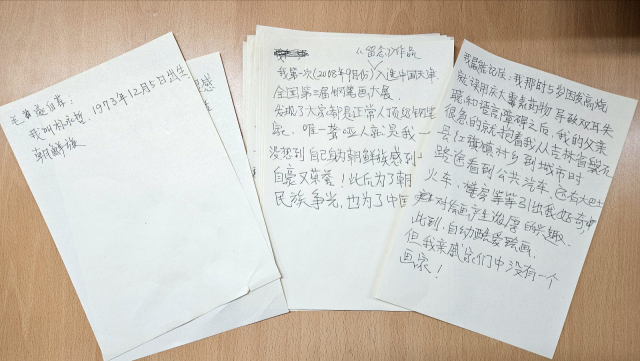 我叫朴永哲,1973年12月5日出生
朝鲜族
《留念》作品
我第一次(2008年9月份)入选中国美术
全国第三届钢笔画大展.
发现了大家都是正常人顶级钢笔
家。唯一聋哑人就是我一
没想到自己身为朝鲜族感到
自豪又荣誉!此后为了朝
民族争光,也为了中国
我最能记住:我那时5岁因发高烧
就误用庆大霉素药物导致双耳失
聪和语言障碍之后,我的父亲
很急的就抱着我从吉林省磐石
县红旗镇村乡到城市时
路途看到公共汽车,还有大巴士
火车,楼房等等引出我好奇中
对绘画产生浓厚的兴趣.
此到,自动酷爱绘画.
但我亲戚家们中没有一个
画家!